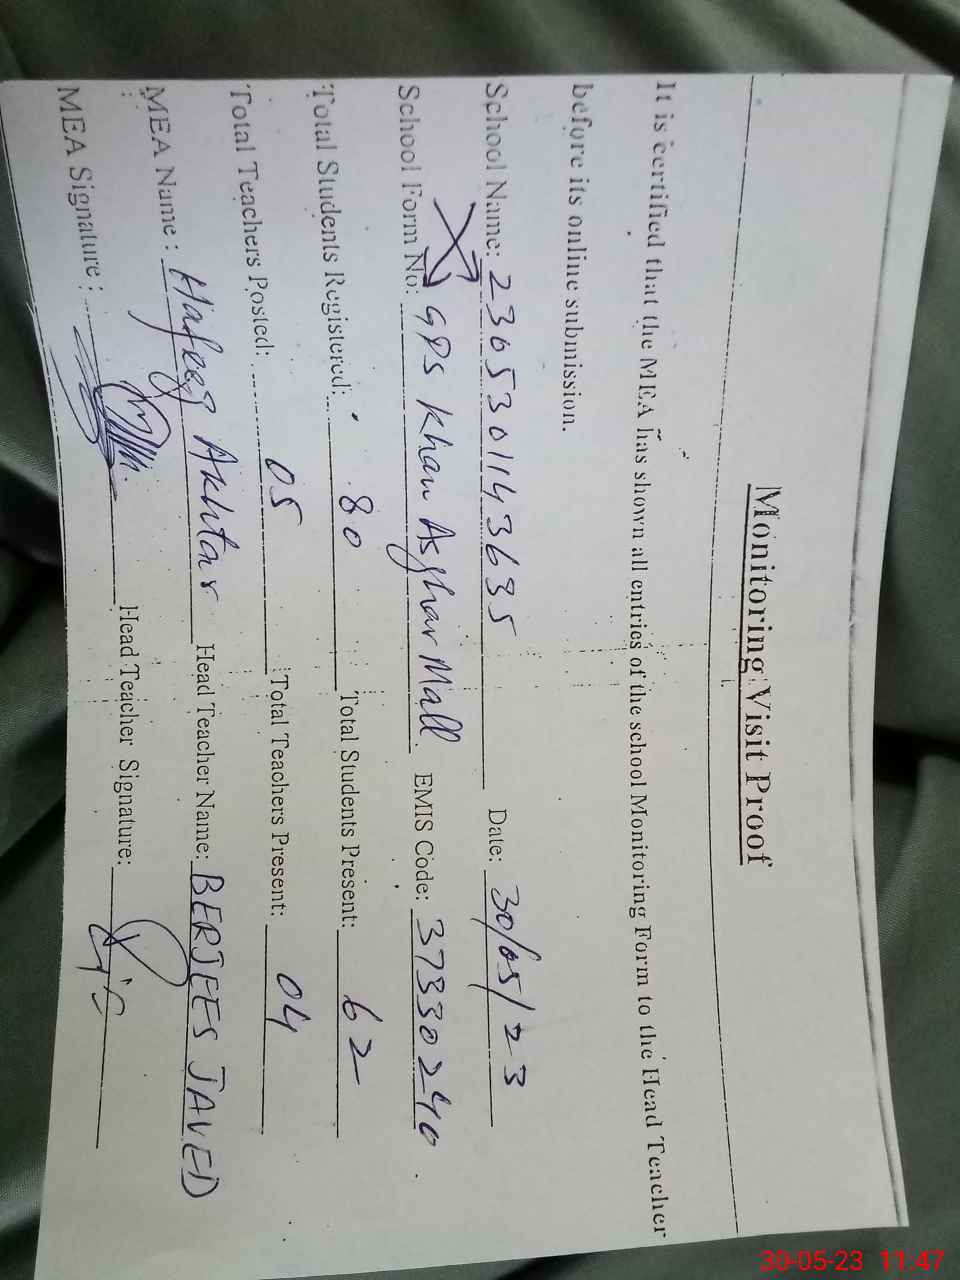 Monitoring Visit Proof
It is certified that the MEA has shown all entries of the school Monitoring Form to the Head Teacher
before its online submission.
School Name: 2305301143635 Date: 30/05/23
School Form No: GPS Khan Asghar Mall. EMIS Code: 37330240
Total Students Registered: 80 Total Students Present: 62
Total Teachers Posted: 05 Total Teachers Present: 04
MEA Name: Hafeez Akhtar Head Teacher Name: BERJEES JAVED
MEA Signature: Head Teacher Signature:
30-05-23 11:47